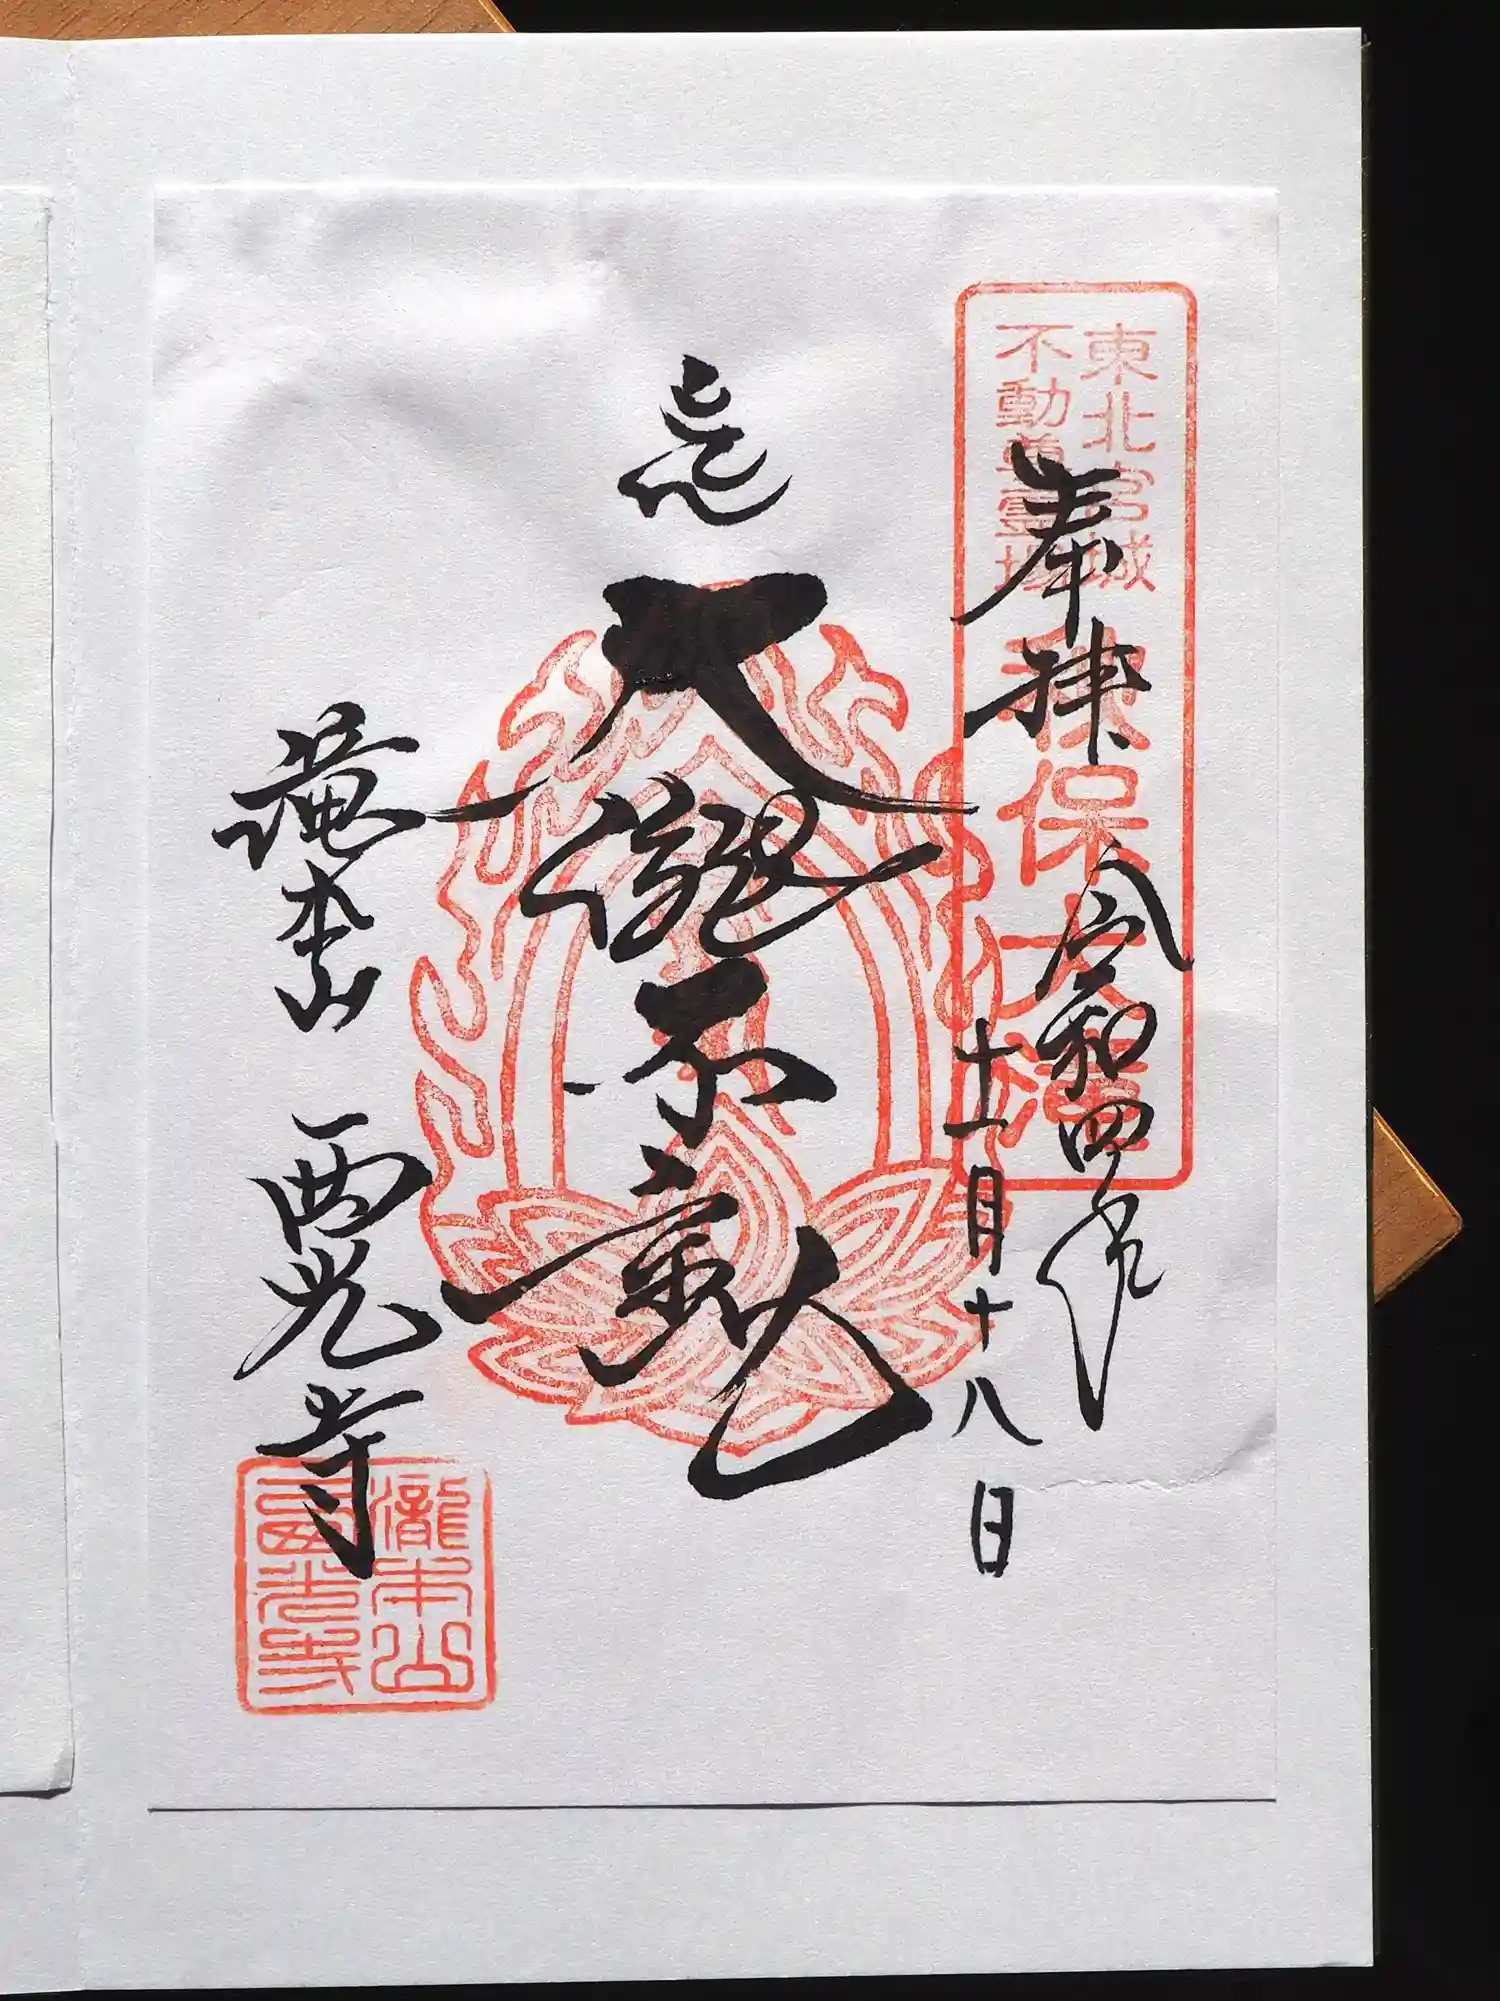 東北宮城
不動尊霊場
秋保大滝
奉拝
令和四年
十一月十八日
大瀧不動
滝本山 西光寺
瀧本山
西光寺